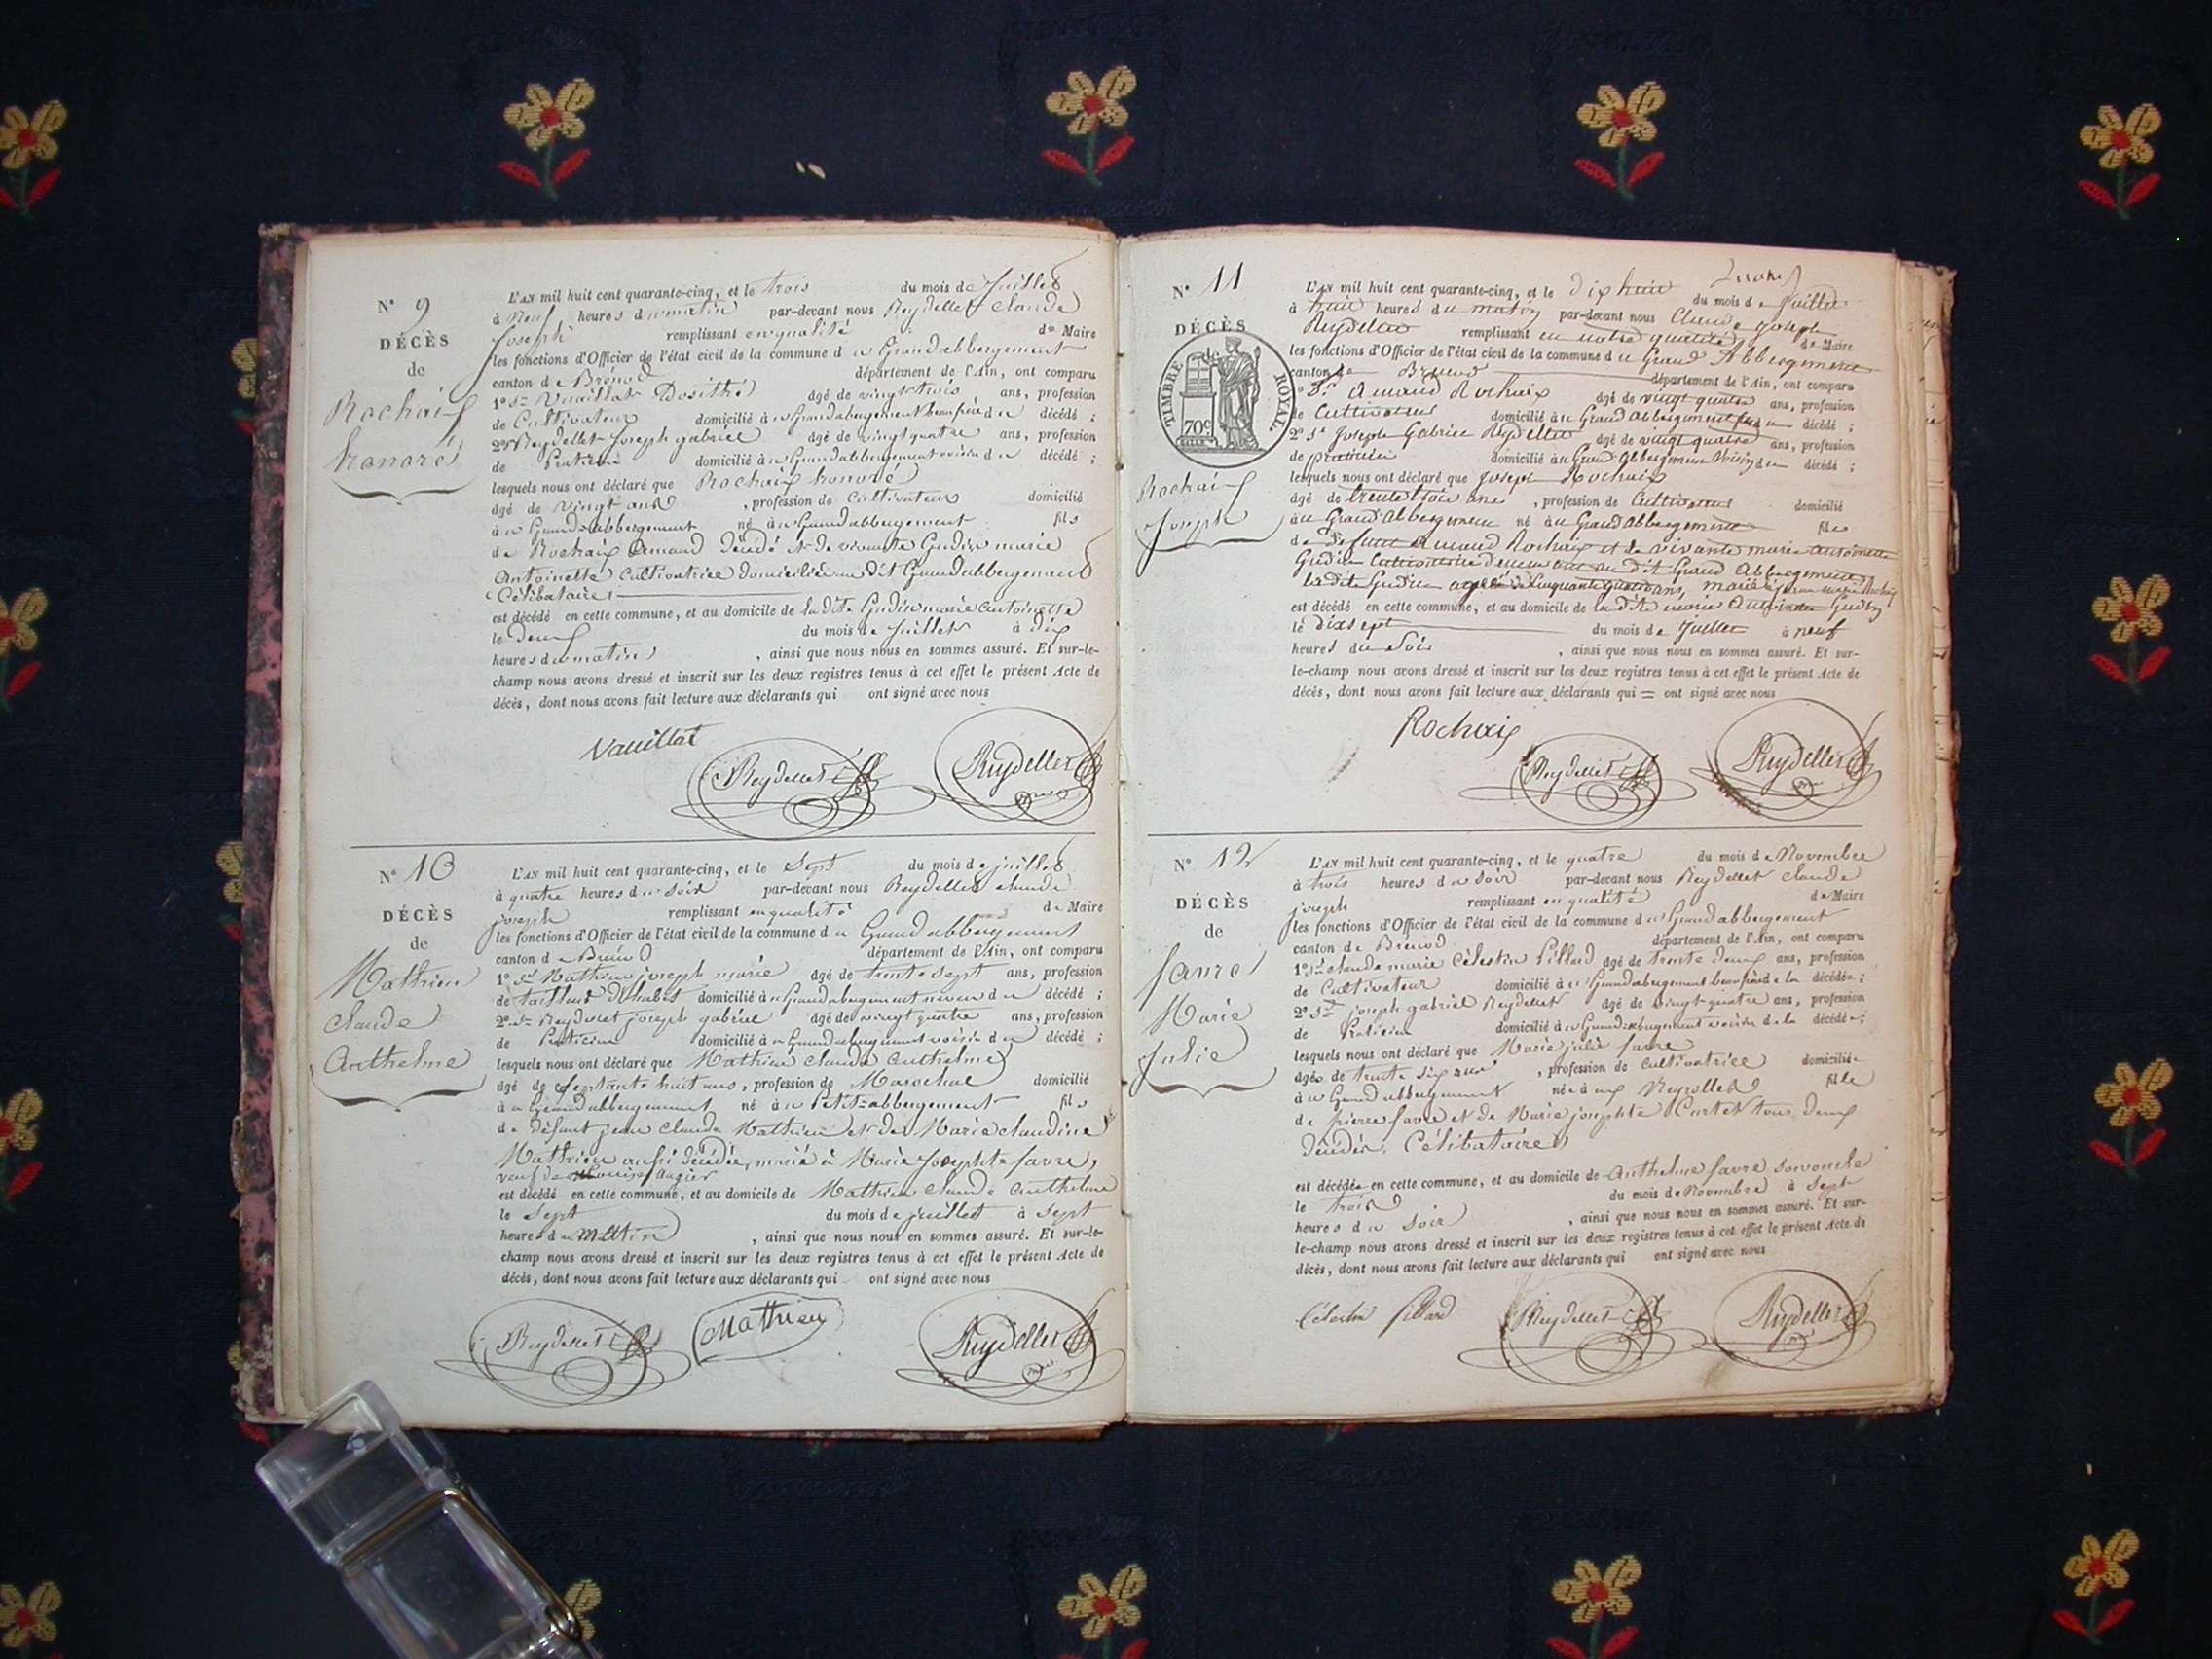 N° 9
DÉCÈS
de
Rochaix
honoré
L'AN mil huit cent quarante-cinq, et le trois du mois de juillet
à Neuf heures du matin par-devant nous Reydellet Claude
joseph remplissant en qualité de Maire
les fonctions d'Officier de l'état civil de la commune du Grandabbergement
canton de Brénod département de l'Ain, ont comparu
1° Sr Vauillat Dosithé âgé de vingt trois ans, profession
de Cultivateur domicilié à u Grandabbergement beau frère du décédé ;
2° Sr Reydellet joseph gabriel âgé de vingt quatre ans, profession
de Praticien domicilié à u Grandabbergement voisin du décédé ;
lesquels nous ont déclaré que Rochaix honoré
âgé de vingt ans , profession de Cultivateur domicilié
à u Grandabbergement né à u Grandabbergement fils
de Rochaix Armand décédé et de vivante Gudin marie
Antoinette Cultivatrice domiciliée au dit Grandabbergement
Célibataire
est décédé en cette commune, et au domicile de la dite Gudin marie antoinette
le deux du mois de Juillet à dix
heures du matin , ainsi que nous nous en sommes assuré. Et sur-le-
champ nous avons dressé et inscrit sur les deux registres tenus à cet effet le présent Acte de
décès, dont nous avons fait lecture aux déclarants qui ont signé avec nous
Vauillat
Reydellet
Reydellet
N° 10
DÉCÈS
de
Mathieu
Claude
Anthelme
L'AN mil huit cent quarante-cinq, et le Sept du mois de juillet
à quatre heures du soir par-devant nous Reydellet claude
joseph remplissant en qualité de Maire
les fonctions d'Officier de l'état civil de la commune du Grandabbergement
canton de Brénod département de l'Ain, ont comparu
1° Sr Mathieu joseph marie âgé de trente sept ans, profession
de tailleur d'habit domicilié à u Grandabbergement neveu du décédé ;
2° Sr Reydellet joseph gabriel âgé de vingt quatre ans, profession
de Praticien domicilié à u Grandabbergement voisin du décédé ;
lesquels nous ont déclaré que Mathieu claude Anthelme
âgé de septante huit ans , profession de Marechal domicilié
à u Grandabbergement né à u Petit-abbergement fils
de défunt jean claude Mathieu et de Marie claudine
Mathieu aussi décédée, marié à Marie josephte favre,
veuf de Louise Augier
est décédé en cette commune, et au domicile de Mathieu claude Anthelme
le sept du mois de juillet à sept
heures du Matin , ainsi que nous nous en sommes assuré. Et sur-le-
champ nous avons dressé et inscrit sur les deux registres tenus à cet effet le présent Acte de
décès, dont nous avons fait lecture aux déclarants qui ont signé avec nous
Reydellet
Mathieu
Reydellet
N° 11
DÉCÈS
TIMBRE ROYAL.
70c.
Rochaix
Joseph
L'AN mil huit cent quarante-cinq, et le dix huit du mois de Juillet
à huit heures du matin par-devant nous Claude joseph
Reydellet remplissant en notre qualité de Maire
les fonctions d'Officier de l'état civil de la commune du Grand Abbergement
canton de Brenod département de l'Ain, ont comparu
1° Sr Armand Rochaix âgé de vingt quatre ans, profession
de Cultivateur domicilié à u Grand Abbergement du décédé ;
2° Sr Joseph Gabriel Reydellet âgé de vingt quatre ans, profession
de praticien domicilié à u Grand Abbergement Voisin du décédé ;
lesquels nous ont déclaré que Joseph Rochaix
âgé de trente trois ans , profession de Cultivateur domicilié
à u Grand Abbergement né à u Grand Abbergement fils
de défunt Armand Rochaix et de vivante marie antoinette
Gudin Cultivatrice demeurant au dit Grand Abbergement
ladite Gudin agée de Cinquante quatre ans, marié à
est décédé en cette commune, et au domicile de la dite marie Antoinette Gudin
le dixsept du mois de Juillet à neuf
heures du Soir , ainsi que nous nous en sommes assuré. Et sur-
le-champ nous avons dressé et inscrit sur les deux registres tenus à cet effet le présent Acte de
décès, dont nous avons fait lecture aux déclarants qui = ont signé avec nous
Rochaix
Reydellet
Reydellet
N° 12
DÉCÈS
de
favre
Marie
Julie
L'AN mil huit cent quarante-cinq, et le quatre du mois de Novembre
à trois heures du soir par-devant nous Reydellet claude
joseph remplissant en qualité de Maire
les fonctions d'Officier de l'état civil de la commune du Grandabbergement
canton de Brenod département de l'Ain, ont comparu
1° Sr claude marie Célestin Pillard âgé de trente deux ans, profession
de Cultivateur domicilié à u Grandabbergement beau frère de la décédée ;
2° Sr joseph gabriel Reydellet âgé de vingt quatre ans, profession
de Praticien domicilié à u Grandabbergement voisin de la décédée ;
lesquels nous ont déclaré que Marie julie favre
âgée de trente six ans , profession de cultivatrice domiciliée
à u Grandabbergement née à fille
de pierre favre et de Marie josephte Cartet tous deux
décédés. Célibataire
est décédée en cette commune, et au domicile de Anthelme favre son oncle
le trois du mois de Novembre à sept
heures du soir , ainsi que nous nous en sommes assuré. Et sur-
le-champ nous avons dressé et inscrit sur les deux registres tenus à cet effet le présent Acte de
décès, dont nous avons fait lecture aux déclarants qui ont signé avec nous
Célestin Pillard
Reydellet
Reydellet